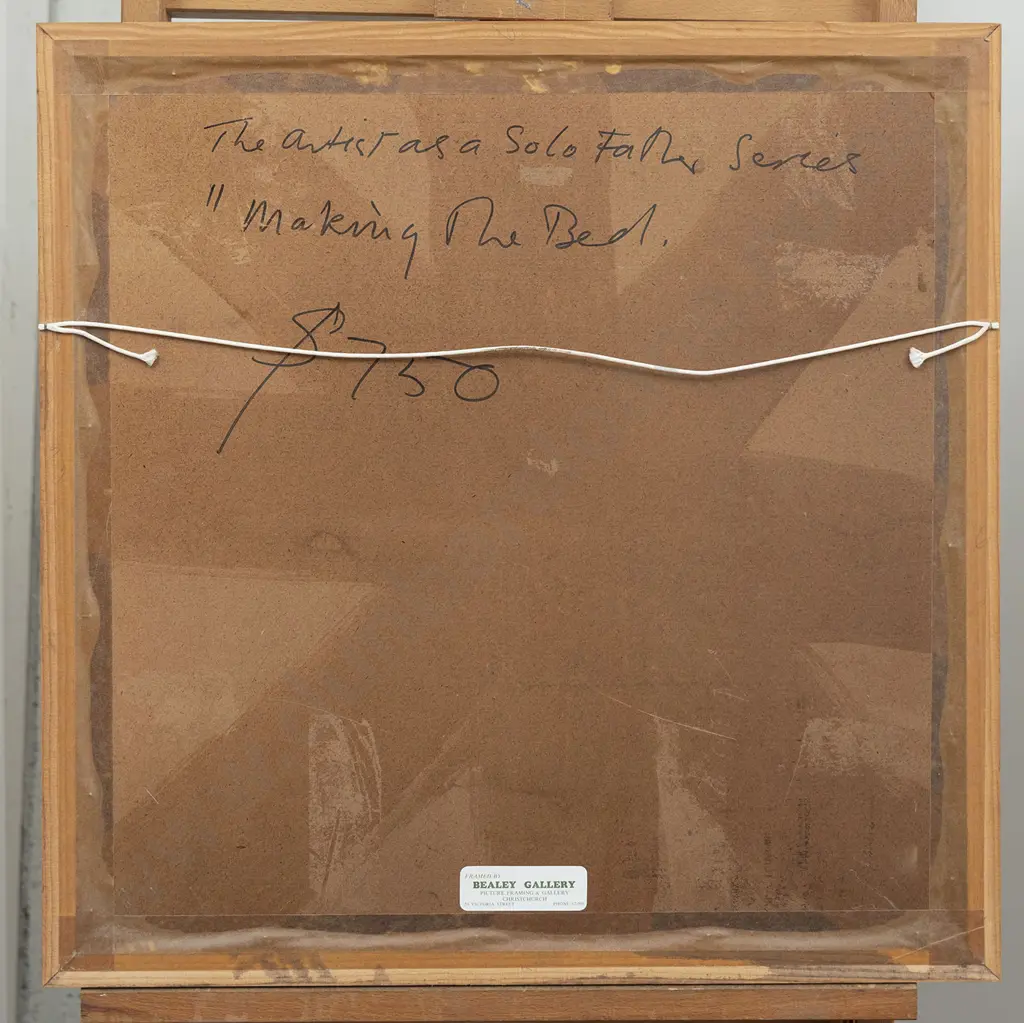 The Artist as a Solo Father Series
" Making The Bed.
$750
FRAMED BY
BEALEY GALLERY
PICTURE FRAMING & GALLERY
CHRISTCHURCH
VICTORIA STREET PHONE